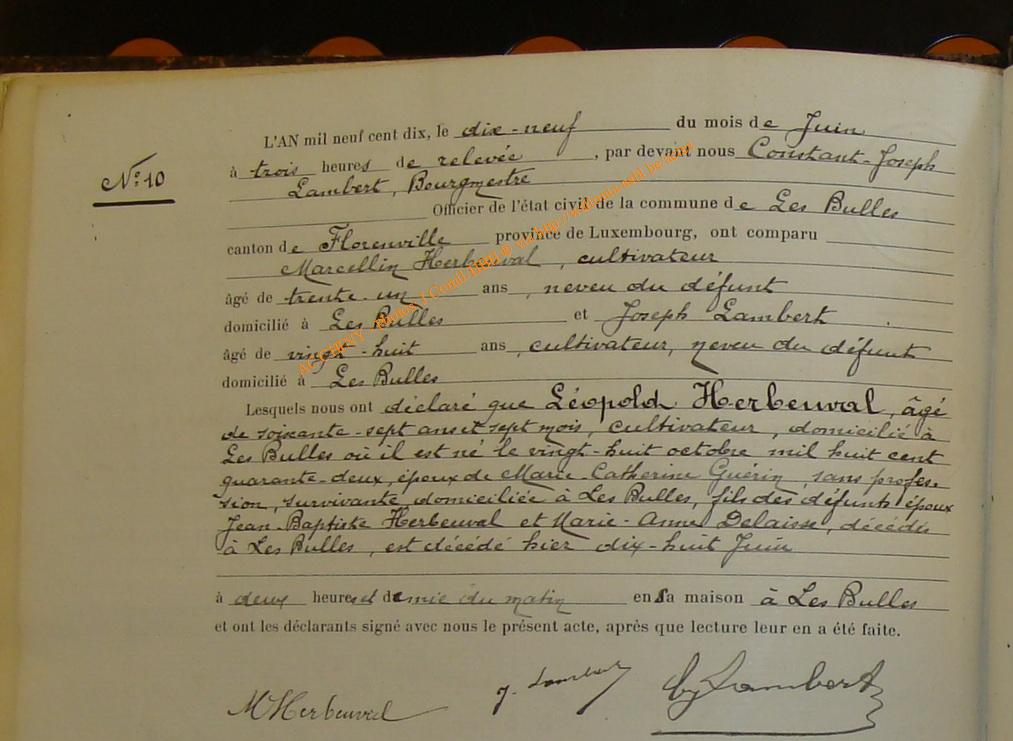 L'AN mil neuf cent dix, le dix-neuf du mois de Juin
No: 10
à trois heures de relevée, par devant nous Constant-Joseph
Lambert, Bourgmestre
Officier de l'état civil de la commune de Les Bulles
canton de Florenville province de Luxembourg, ont comparu
Marcellin Herbeuval, cultivateur
âgé de trente-un ans, neveu du défunt
domicilié à Les Bulles et Joseph Lambert
âgé de vingt-huit ans, cultivateur, neveu du défunt
domicilié à Les Bulles
Lesquels nous ont déclaré que Léopold Herbeuval, âgé
de soixante-sept ans et sept mois, cultivateur, domicilié à
Les Bulles où il est né le vingt-huit octobre mil huit cent
quarante-deux, époux de Marie-Catherine Guérin, sans profes-
sion, survivante, domiciliée à Les Bulles, fils des défunts époux
Jean-Baptiste Herbeuval et Marie-Anne Delaisse, décédés
à Les Bulles, est décédé hier dix-huit Juin
à deux heures et demie du matin en sa maison à Les Bulles
et ont les déclarants signé avec nous le présent acte, après que lecture leur en a été faite.
MHerbeuval J. Lambert Lambert